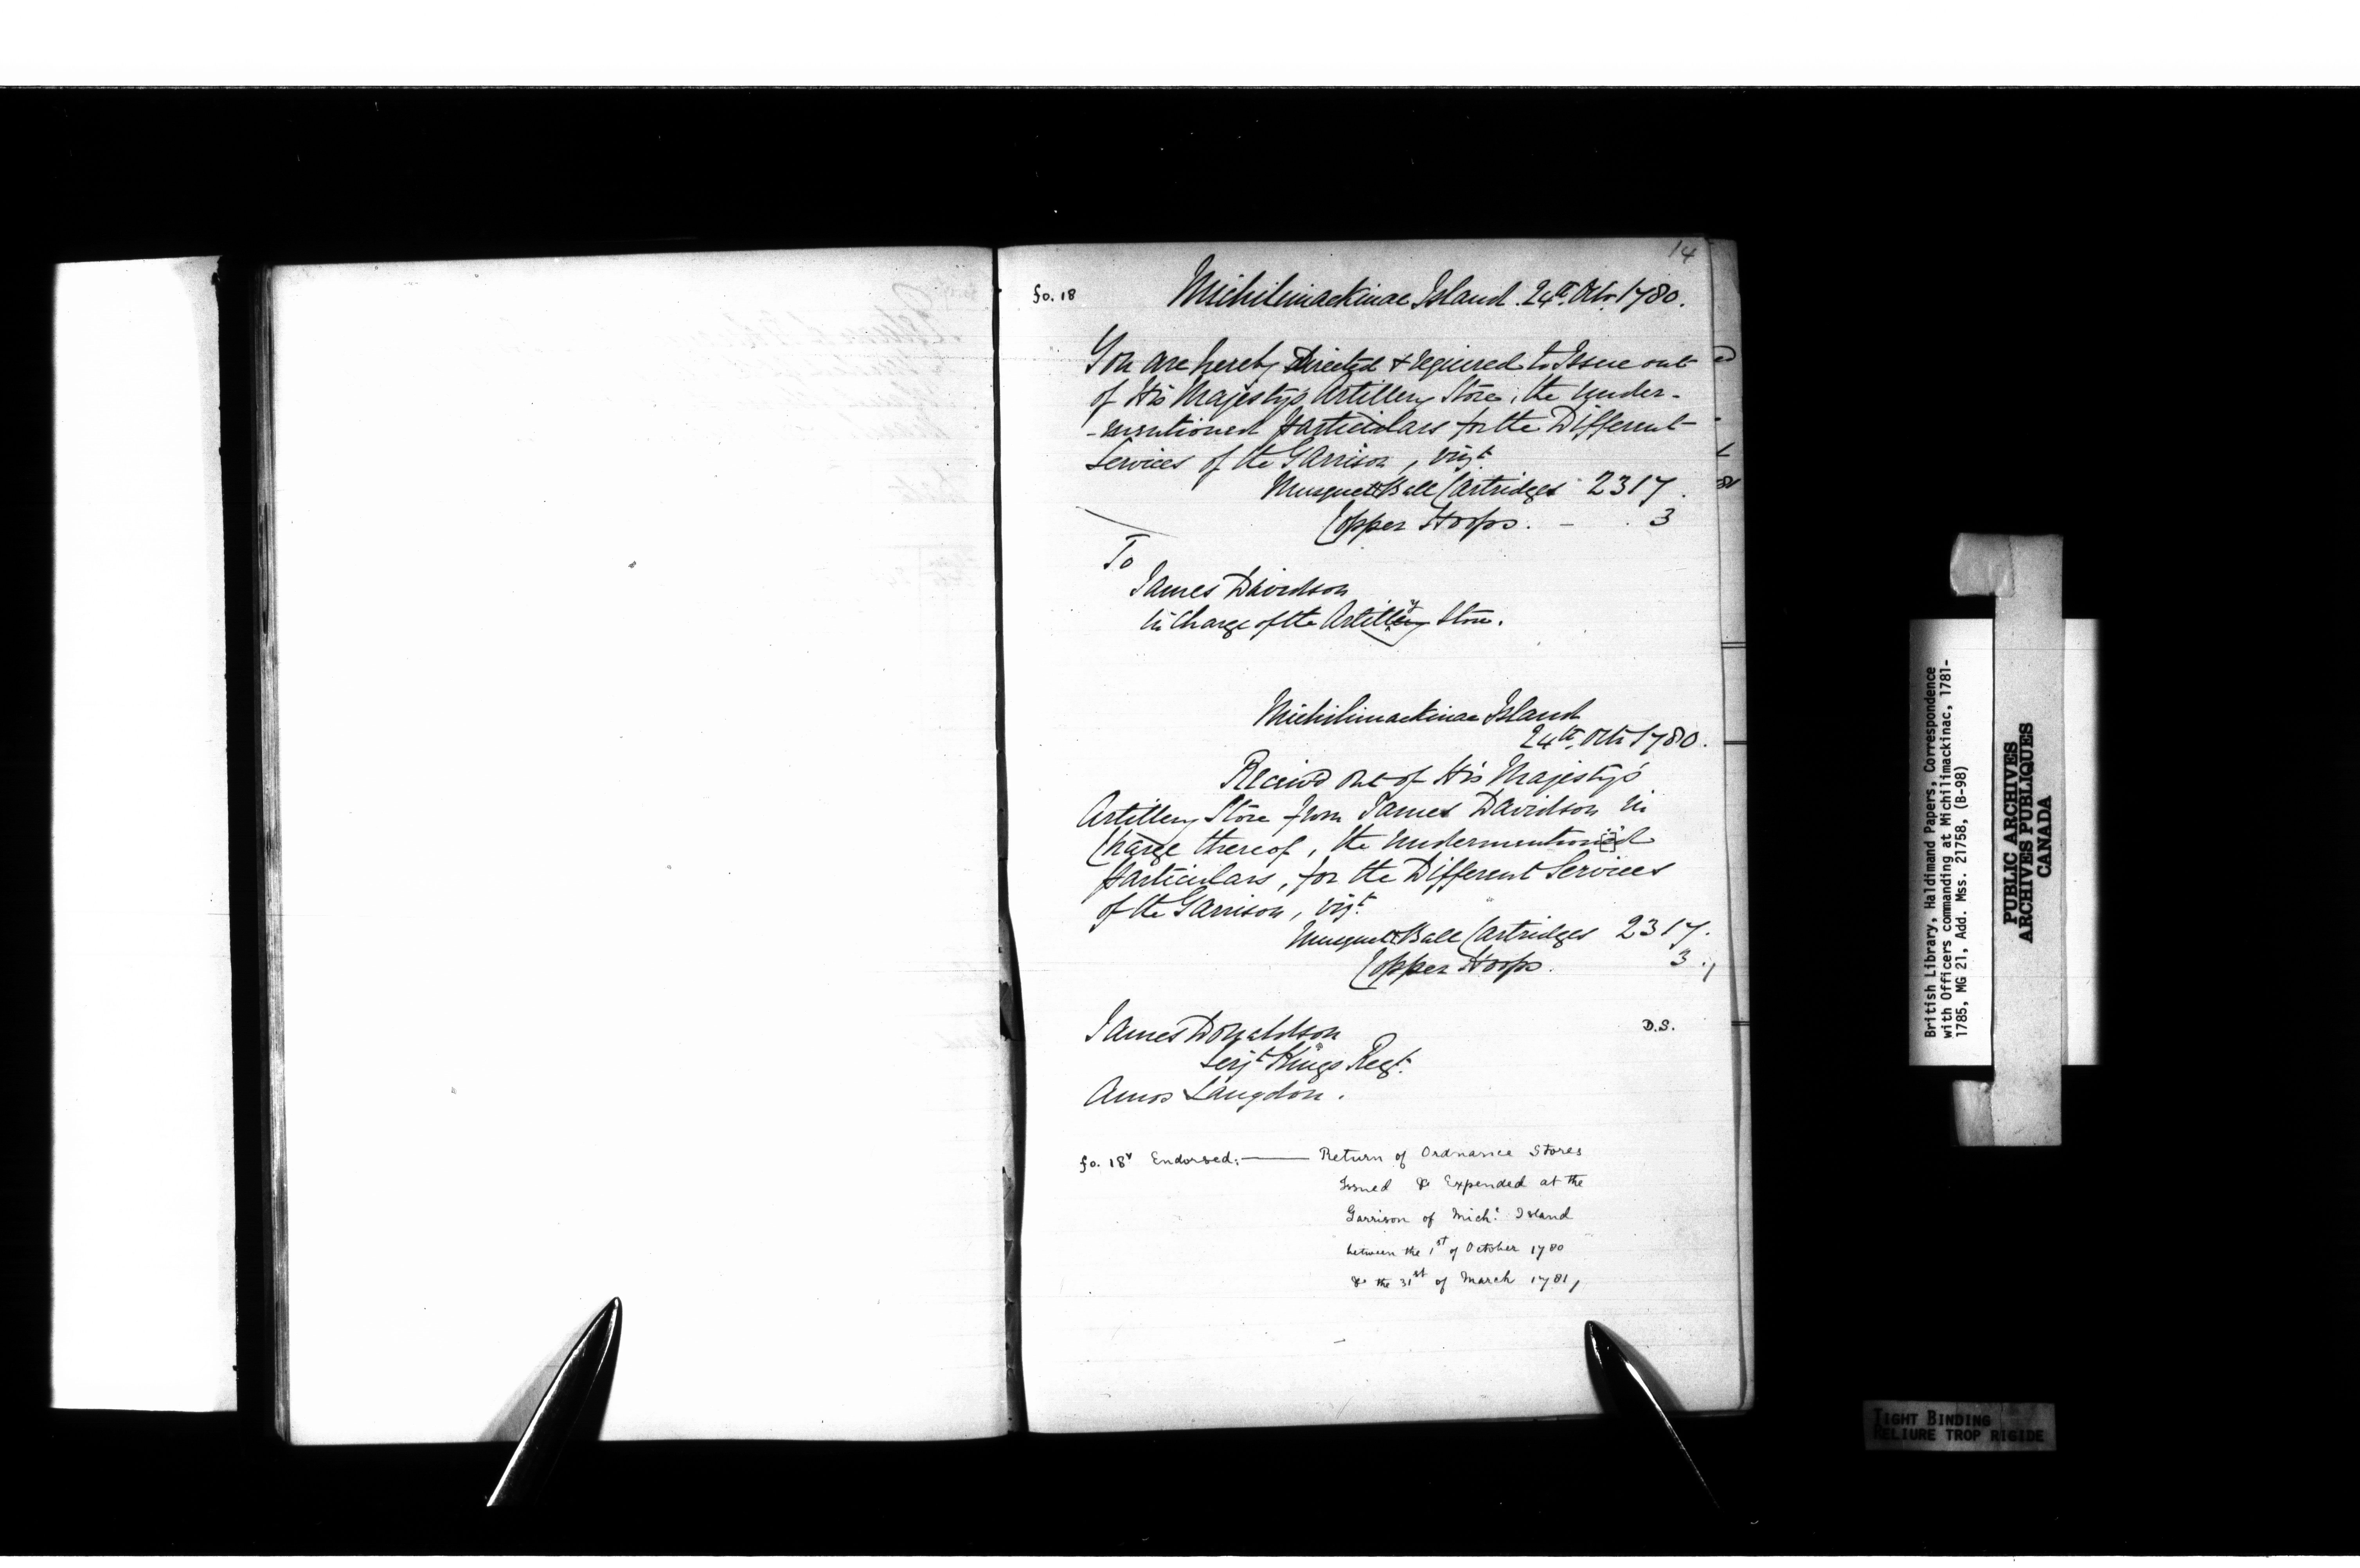 14
fo. 18
Michilimackinac Island. 24th. Octr. 1780.
You are hereby Directed & required to Issue out
of His Majesty's Artillery Store, the under-
-mentioned particulars for the Different
Services of the Garrison, vizt
Musquet Ball Cartridges 2317.
Copper Hoops. - . 3
To
James Davidson
in Charge of the Artillery Store.
Michilimackinac Island
24th. Octr 1780.
Receiv'd out of His Majesty's
Artillery Store from James Davidson in
Charge thereof, the undermention[e]d
particulars, for the Different Services
of the Garrison, vizt.
Musquet Ball Cartridges 2317.
Copper Hoops. 3.,
James Donaldson D.S.
Serjt Kings Regt.
Amos Langdon.
fo. 18v Endorsed:— Return of Ordnance Stores
Issued & Expended at the
Garrison of Mich: Island
between the 1st of October 1780
& the 31st of March 1781,
British Library, Haldimand Papers, Correspondence
with Officers commanding at Michilimackinac, 1781-
1785, MG 21, Add. Mss. 21758, (B-98)
PUBLIC ARCHIVES
ARCHIVES PUBLIQUES
CANADA
TIGHT BINDING
RELIURE TROP RIGIDE